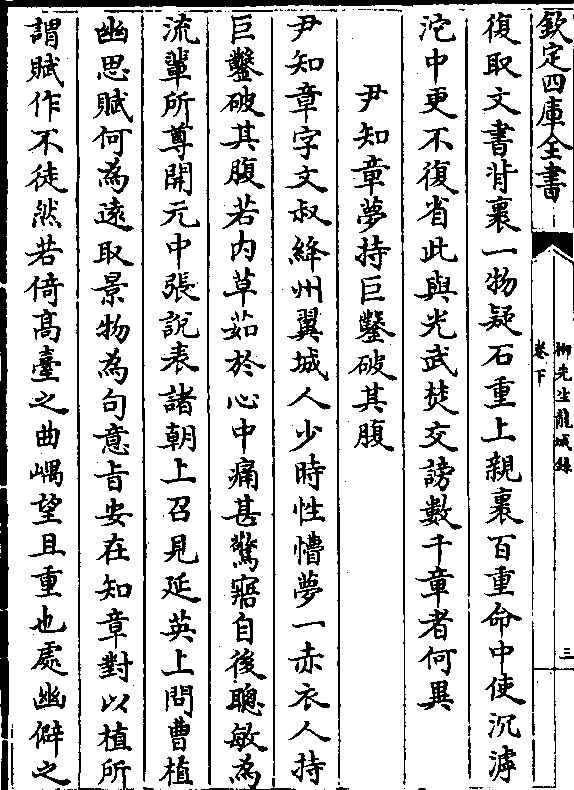 欽定四庫全書
柳先生龍城錄
卷下
三
復取文書背裹一物疑石重上親裹百重命中使沉滹
沱中更不復省此與光武焚交謗數千章者何異
尹知章夢持巨鑿破其腹
尹知章字文叔絳州翼城人少時性懵夢一赤衣人持
巨鑿破其腹若内草茹於心中痛甚驚寤自後聰敏為
流輩所尊開元中張說表諸朝上召見延英上問曹植
幽思賦何為遠取景物為句意旨安在知章對以植所
謂賦作不徒然若倚高臺之曲嵎望且重也處幽僻之